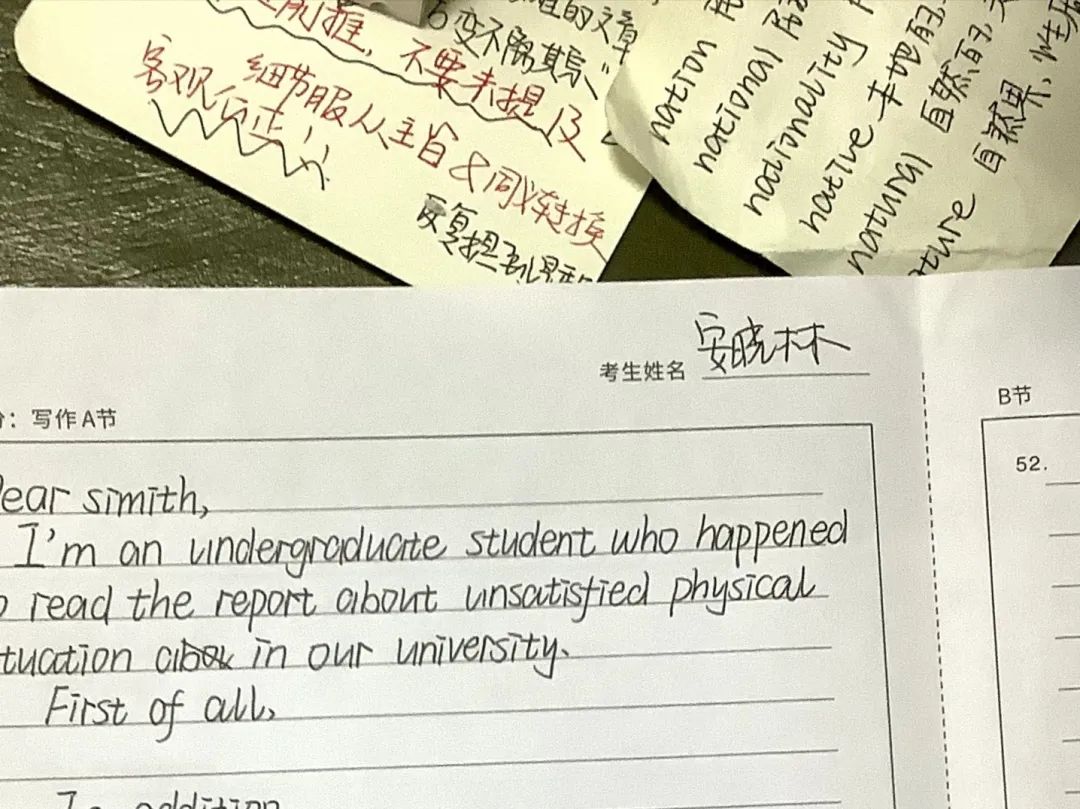 刚推,不要未提及
百变不离其宗"
的文章
客观公正
细节服从主旨&同义转换
反复提
nation
national
nationality
native
natural 自然的
ature 自然界、性
考生姓名 安晓林
: 写作A节
ear simith,
I'm an undergraduate student who happened
read the report about unsatisfied physical
tuation abou in our university.
First of all,
In addition
B节
52.